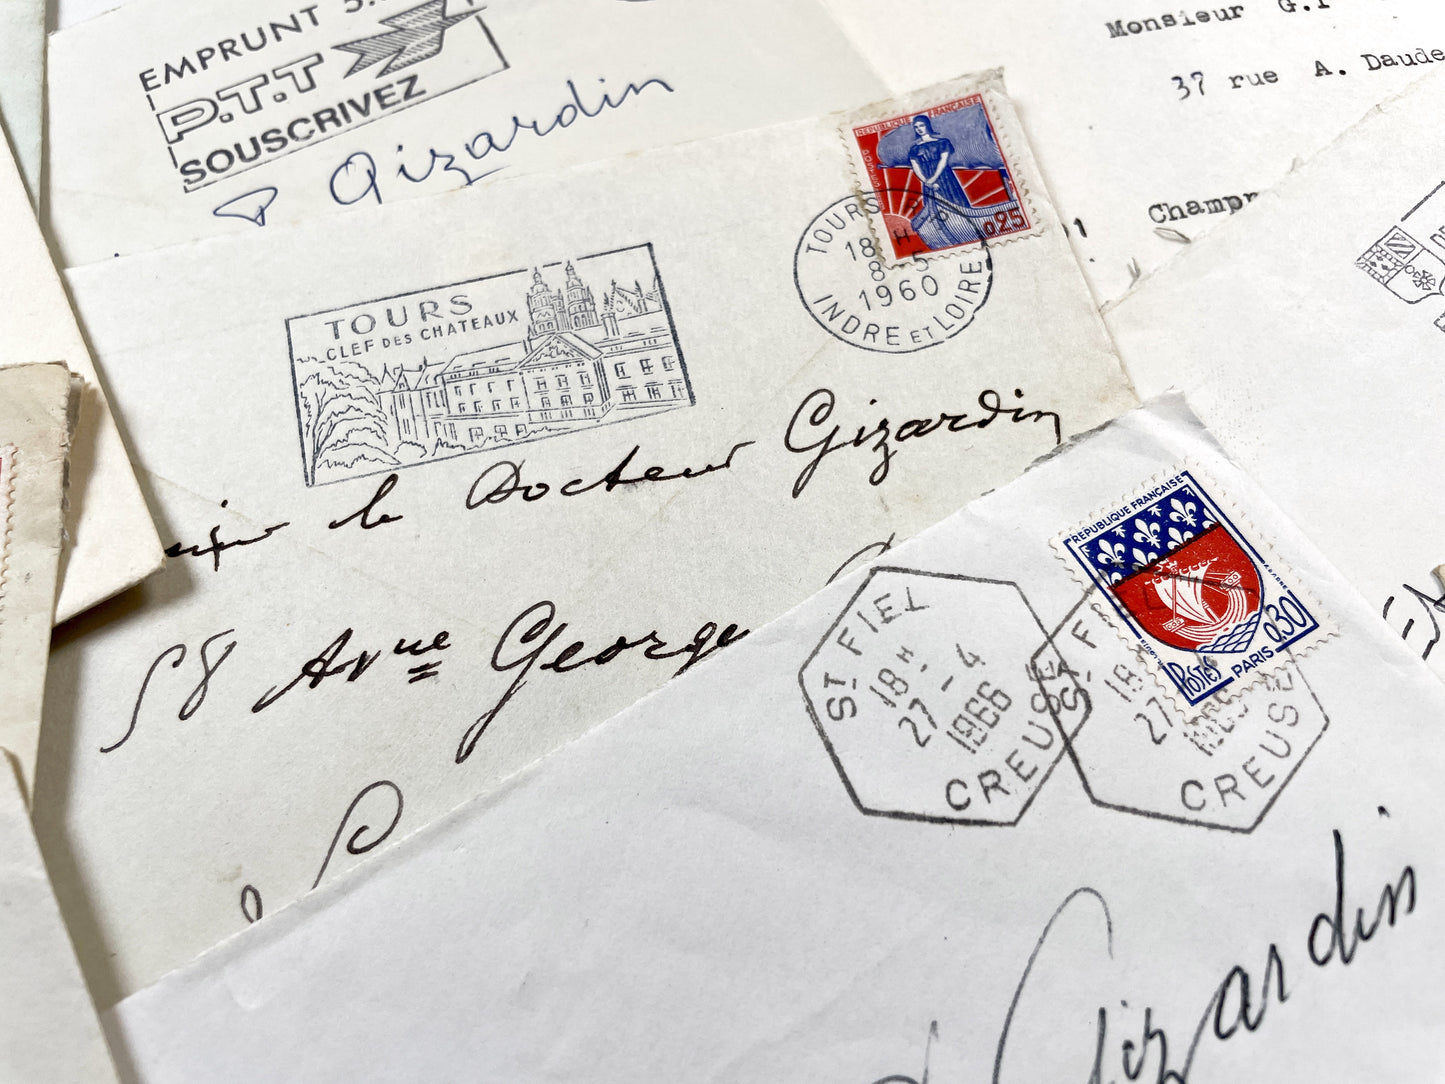 EMPRUNT
P.T.T
SOUSCRIVEZ
Gizardin
Monsieur G.
37 rue A. Daude
REPUBLIQUE FRANÇAISE
POSTES
0,25
TOURS
18 H
8-5
1960
INDRE ET LOIRE
TOURS
CLEF DES CHATEAUX
le Docteur Gizardin
58 Avnue George
REPUBLIQUE FRANÇAISE
0,30
POSTES
PARIS
ST FIEL
18 H
27-4
1966
CREUSE
ST F
18
27
CREUS
Gizardin